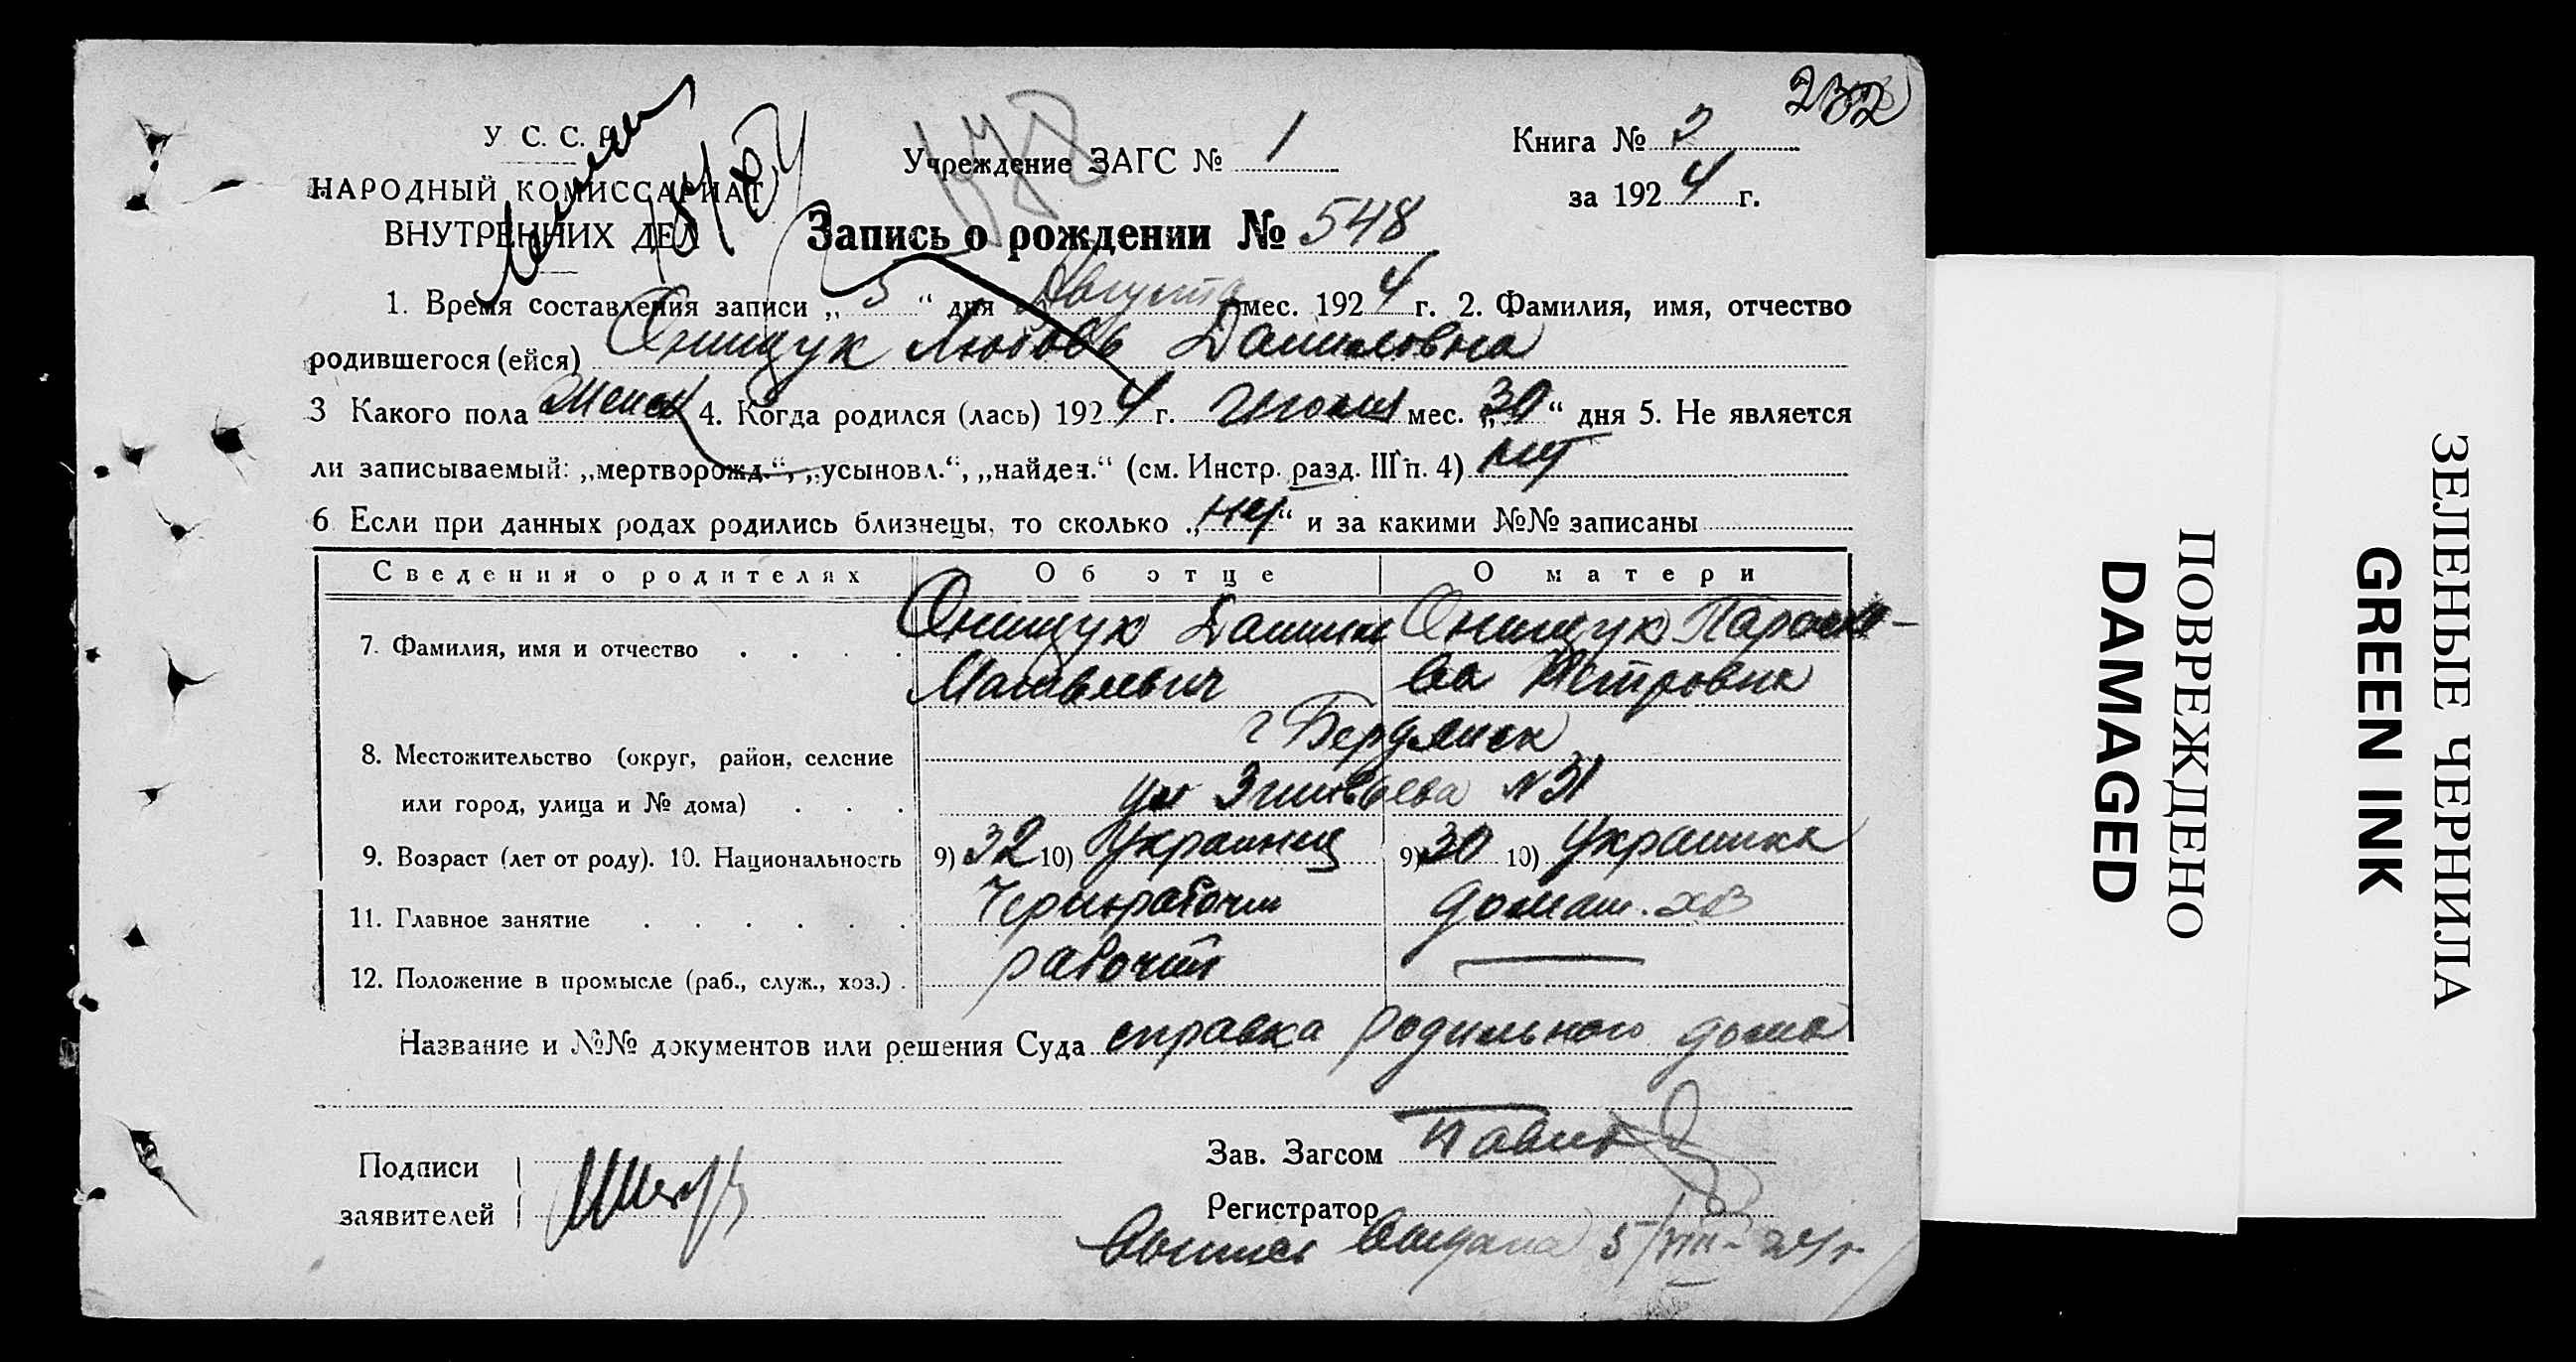 232
У. С. С. Р.
НАРОДНЫЙ КОМИССАРИАТ
ВНУТРЕННИХ ДЕЛ
178
Учреждение ЗАГС № 1
Книга № 2
за 1924 г.
Запись о рождении № 548
1. Время составления записи „5“ дня Августа мес. 1924 г. 2. Фамилия, имя, отчество
родившегося (ейся) Онищук Любовь Даниловна
3 Какого пола женск 4. Когда родился (лась) 1924 г. июля мес. „30“ дня 5. Не является
ли записываемый: „мертворожд.“, „усыновл.“, „найден.“ (см. Инстр. разд. III п. 4) нет
6 Если при данных родах родились близнецы, то сколько „нет“ и за какими №№ записаны
Сведения о родителях Об отце О матери
7. Фамилия, имя и отчество Онищук Даниил Онищук Параске-
Матвеевич ва Петровна
г Бердянск
8. Местожительство (округ, район, селение
или город, улица и № дома) ул Зиновьева №31
9. Возраст (лет от роду). 10. Национальность 9) 32 10) Украинец 9) 30 10) Украинка
11. Главное занятие Чернорабочий домаш. хоз
12. Положение в промысле (раб., служ., хоз.) рабочий —
Название и №№ документов или решения Суда справка родильного дома
Подписи
заявителей
Зав. Загсом
Регистратор
выдана 5/VIII-24 г.
ПОВРЕЖДЕНО
DAMAGED
ЗЕЛЕНЫЕ ЧЕРНИЛА
GREEN INK